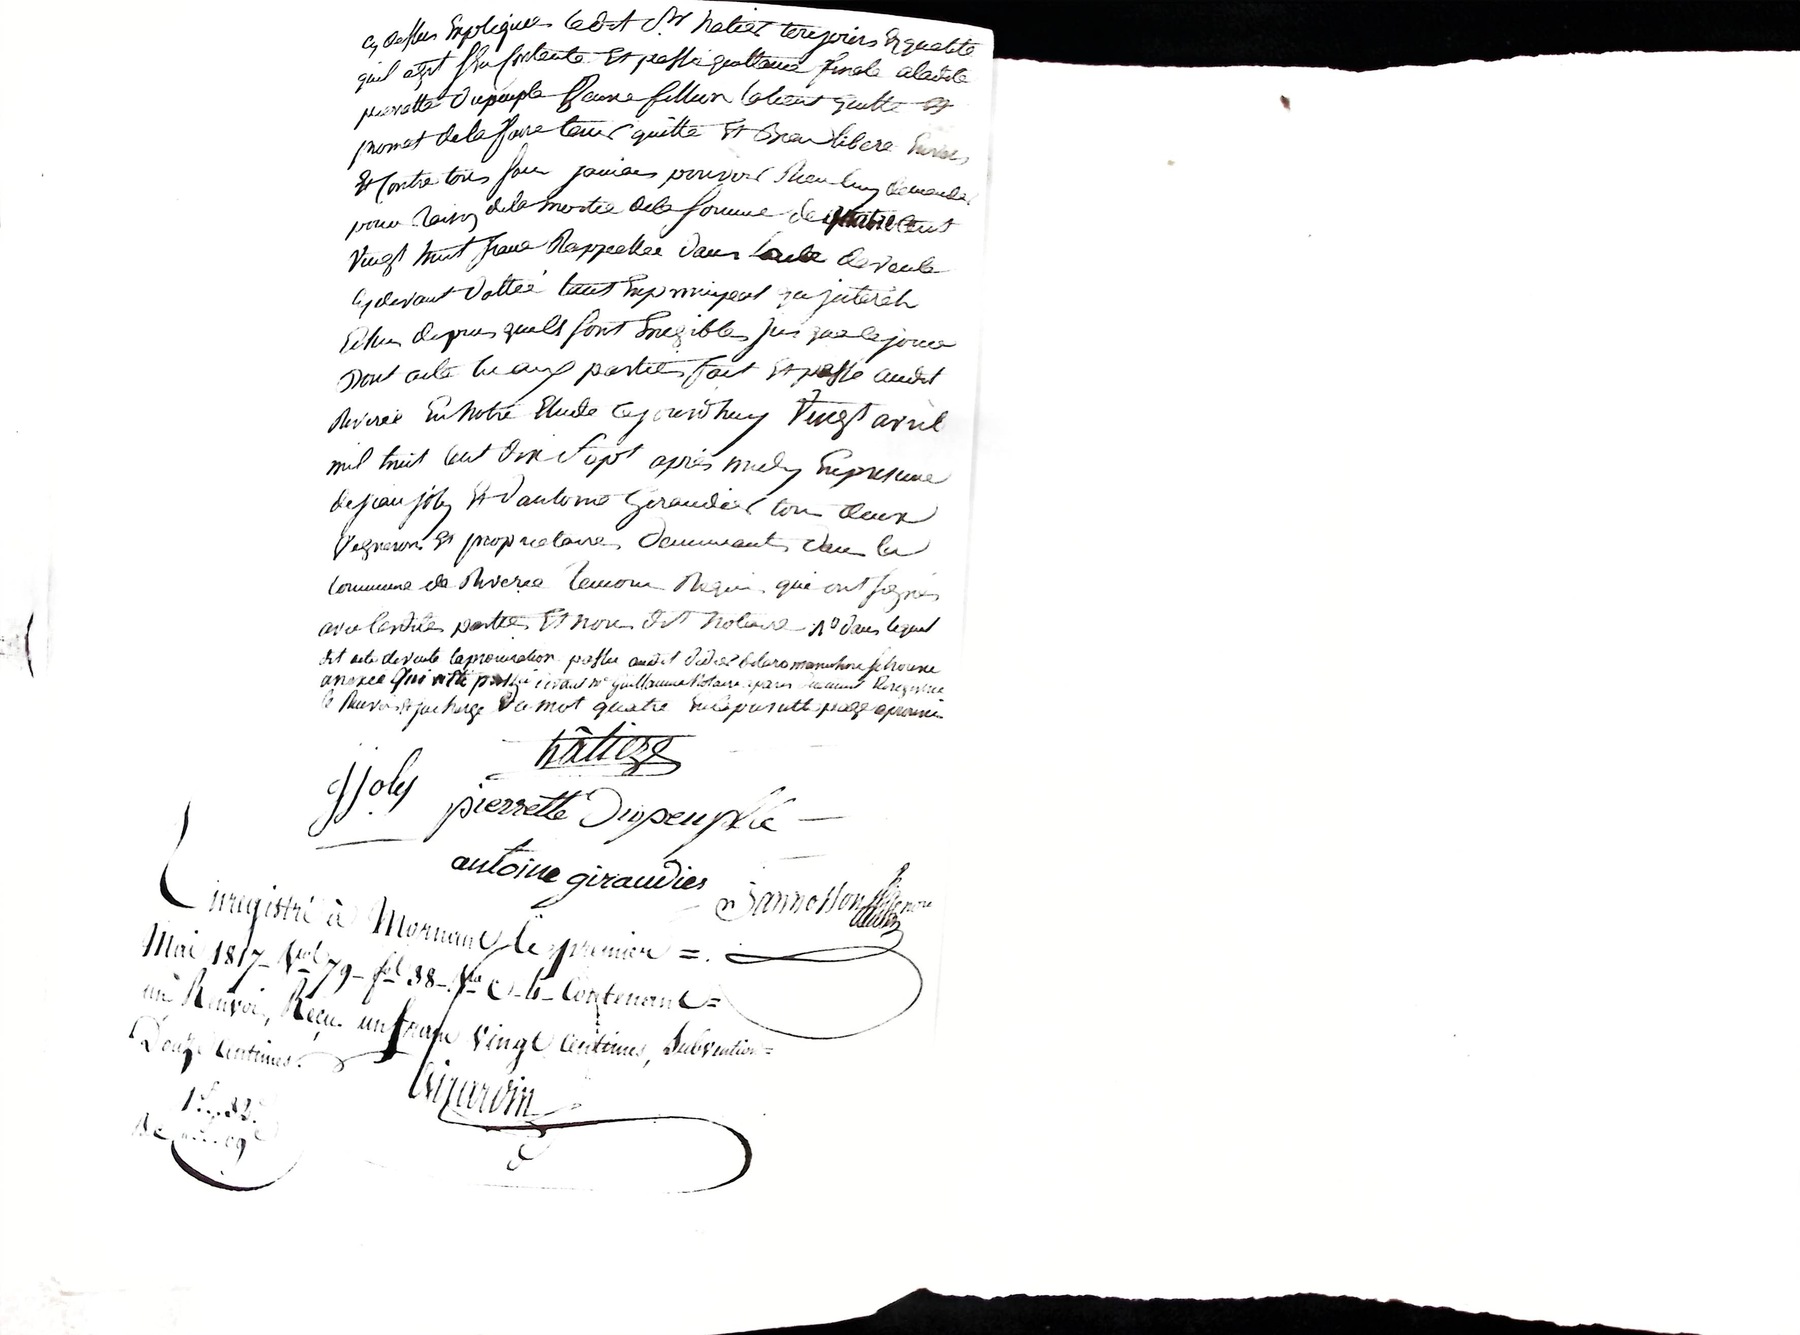 cy dessus Expliquée ledit Sr. hatier toujours En qualité
qu'il agit s'en contente Et passe quittance finale a ladite
pierrette Dupeuple femme fillion la tient quitte Et
promet de la faire tenir quitte Et Bien libere Envers
Et Contre tous sans jamais pouvoir Rien luy demander
pour Raison de la moitié de la somme de quatre Cent
vingt huit franc Rappellée dans l'acte de vente
cy devant datté tant En principal qu'interêts
Echus depuis quils sont Exigibles jus que ce jour
Dont acte lu aux parties fait Et passé audit
Riverie En Notre Etude cejourd'huy vingt avril
mil huit Cent dix Sept après midy En presence
de jean joly Et d'antoine Giraudier tous deux
vignerons Et proprietaires demeurants dans la
Commune de Riverie temoins Requis qui ont signés
avec lesdites parties Et nous dit notaire - Ro dans lequel
dit acte de vente la procuration passée audit se trouve
anexée qui a été passée devant Me Guillaume Notaire a paris
le Renvoi Et surcharge du mot quatre En la presente page aprouvés
hâtier
jjoly
pierrette Dupeuple
antoine giraudier
jannosson
Enregistré à Mornant le premier =
Mai 1817 - vol 79 - fol 38 - Vo C - 4 - Contenant =
un Renvoi, Reçu un franc vingt Centimes, Subvention =
Douze Centimes.
Dijardin
1f. 32c.